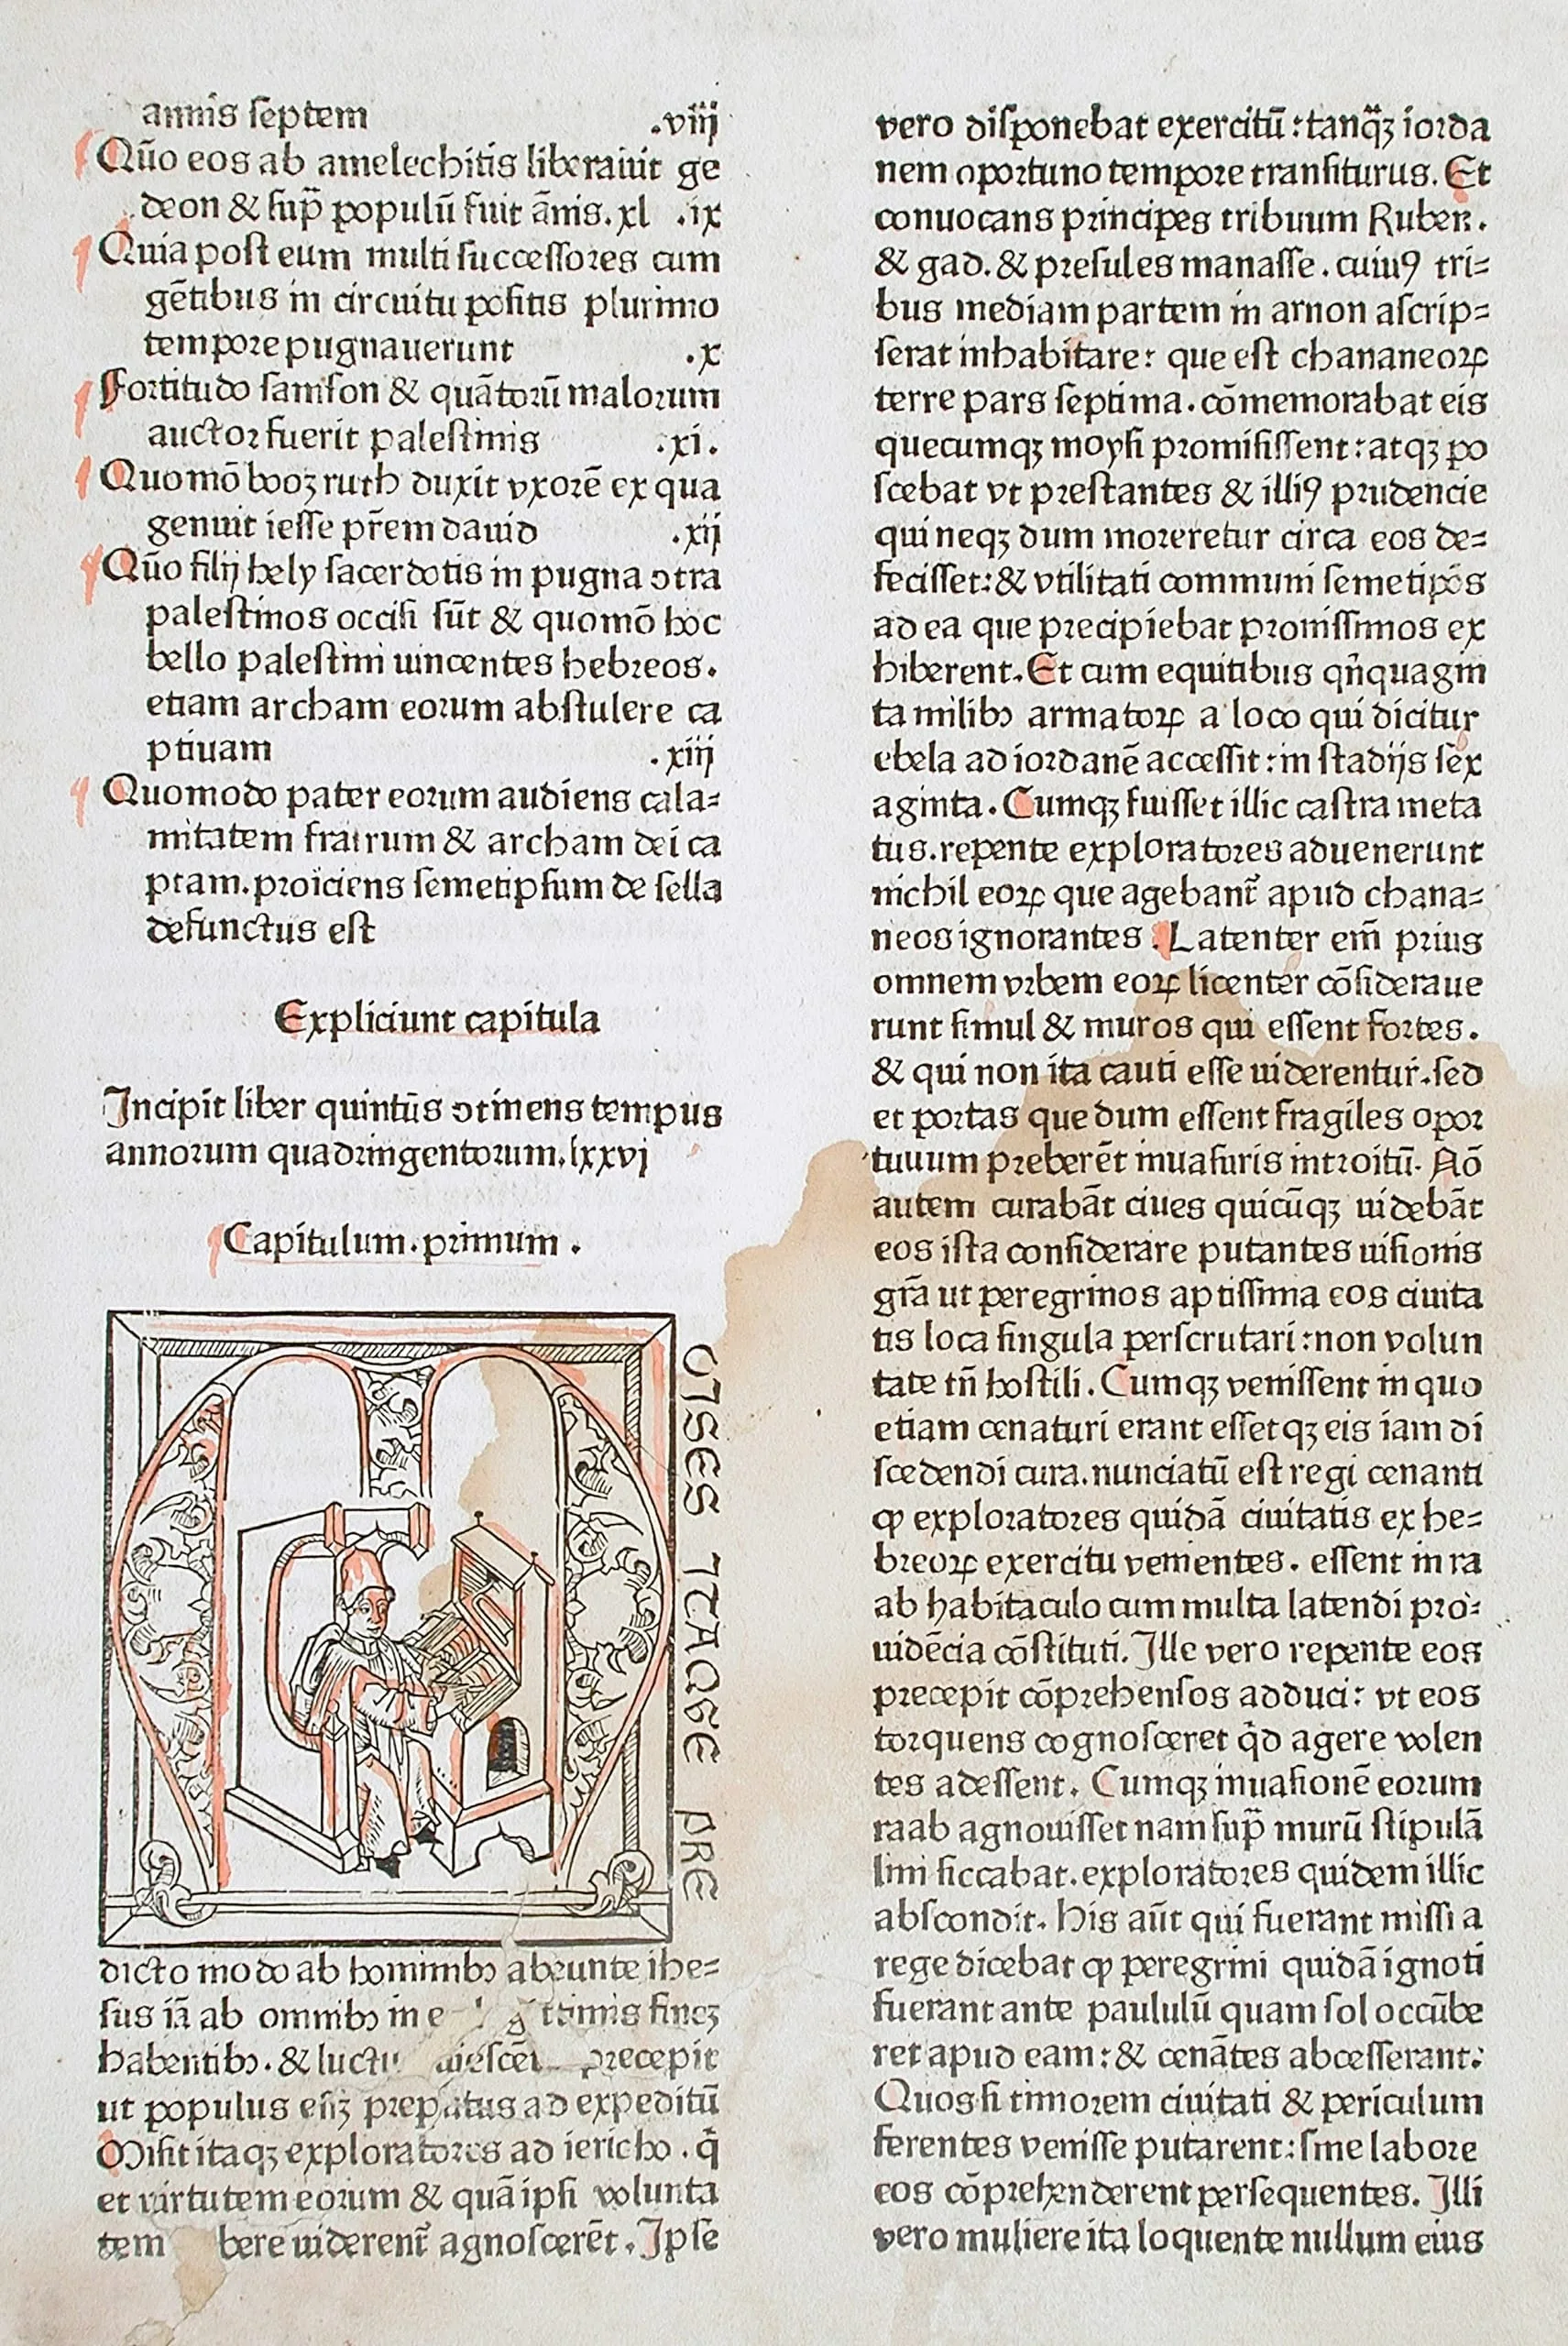 annis septem .viij
Qūo eos ab amelechitis liberauit ge
deon & sup̄ populū fuit ānis.xl .ix
Quia post eum multi successores cum
gētibus in circuitu positis plurimo
tempore pugnauerunt .x
Fortitudo samson & quātorū malorum
auctor fuerit palestinis .xi.
Quomō booz ruth duxit vxorē ex qua
genuit iesse pr̄em dauid .xij
Qūo filij hely sacerdotis in pugna ↄtra
palestinos occisi sūt & quomō hoc
bello palestini uincentes hebreos.
etiam archam eorum abstulere ca
ptiuam .xiij
Quomodo pater eorum audiens cala=
mitatem fratrum & archam dei ca
ptam.proiciens semetipsum de sella
defunctus est
Expliciunt capitula
Incipit liber quintus ↄtinens tempus
annorum quadringentorum.lxxvj
Capitulum.primum.
M
OISES ITAQVE PRE
dicto modo ab hominibꝰ abeunte ihe=
sus iā ab omnibꝰ in e timis finez
habentibꝰ.& luctu precepit
ut populus eēt preparatus ad expeditū
Misit itaqꝫ exploratores ad iericho.q̄
et virtutem eorum & quā ipsi volunta
tem bere uiderent̄ agnoscerēt.Ipse
vero disponebat exercitū:tanq̄ꝫ iorda
nem oportuno tempore transiturus.Et
conuocans principes tribuum Ruben.
& gad.& presules manasse.cuiuꝰ tri=
bus mediam partem in arnon ascrip=
serat inhabitare: que est chananeoꝝ
terre pars septima.cōmemorabat eis
quecumqꝫ moysi promisissent:atqꝫ po
scebat vt prestantes & illiꝰ prudencie
qui neqꝫ dum moreretur circa eos de=
fecisset:& vtilitati communi semetipōs
ad ea que precipiebat promissimos ex
hiberent.Et cum equitibus qn̄quagin
ta milibꝰ armatoꝝ a loco qui dicitur
ebela ad iordanē accessit:in stadijs sex
aginta.Cumqꝫ fuisset illic castra meta
tus.repente exploratores aduenerunt
nichil eoꝝ que agebant̄ apud chana=
neos ignorantes.Latenter em̄ prius
omnem vrbem eoꝝ licenter cōsideraue
runt simul & muros qui essent fortes.
& qui non ita cauti esse uiderentur.sed
et portas que dum essent fragiles opor
tuuum preberēt inuasuris introitū.Nō
autem curabāt ciues quicūqꝫ uidebāt
eos ista considerare putantes uisionis
gr̄a ut peregrinos aptissima eos ciuita
tis loca singula perscrutari:non volun
tate tn̄ hostili.Cumqꝫ venissent in quo
etiam cenaturi erant essetqꝫ eis iam di
scedendi cura.nunciatū est regi cenanti
ꝙ exploratores quidā ciuitatis ex he=
breoꝝ exercitu venientes.essent in ra
ab habitaculo cum multa latendi pro=
uidēcia cōstituti.Ille vero repente eos
precepit cōprehensos adduci: vt eos
torquens cognosceret q̄d agere volen
tes adessent.Cumqꝫ inuasionē eorum
raab agnouisset nam sup̄ murū stipulā
lini siccabat.exploratores quidem illic
abscondit.His aūt qui fuerant missi a
rege dicebat ꝙ peregrini quidā ignoti
fuerant ante paululū quam sol occūbe
ret apud eam:& cenātes abcesserant:
Quos si timorem ciuitati & periculum
ferentes venisse putarent:sine labore
eos cōprehenderent persequentes.Illi
vero muliere ita loquente nullum eius